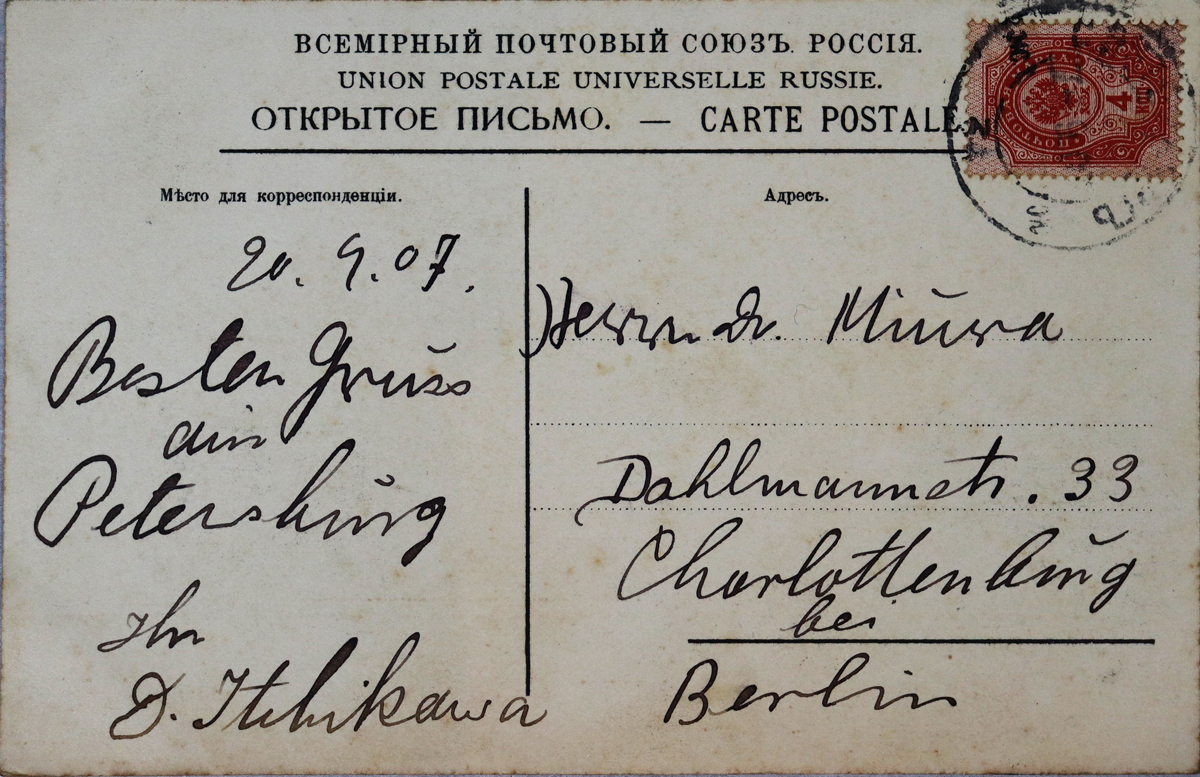 ВСЕМІРНЫЙ ПОЧТОВЫЙ СОЮЗЪ. РОССІЯ.
UNION POSTALE UNIVERSELLE RUSSIE.
ОТКРЫТОЕ ПИСЬМО. — CARTE POSTALE
Мѣсто для корреспонденціи.
20. 9. 07.
Besten Gruss
Petersburg
Ihr
D. Itchikawa
Адресъ.
Herrn Dr. Miura
Dahlmannstr. 33
Charlottenburg
bei
Berlin
4